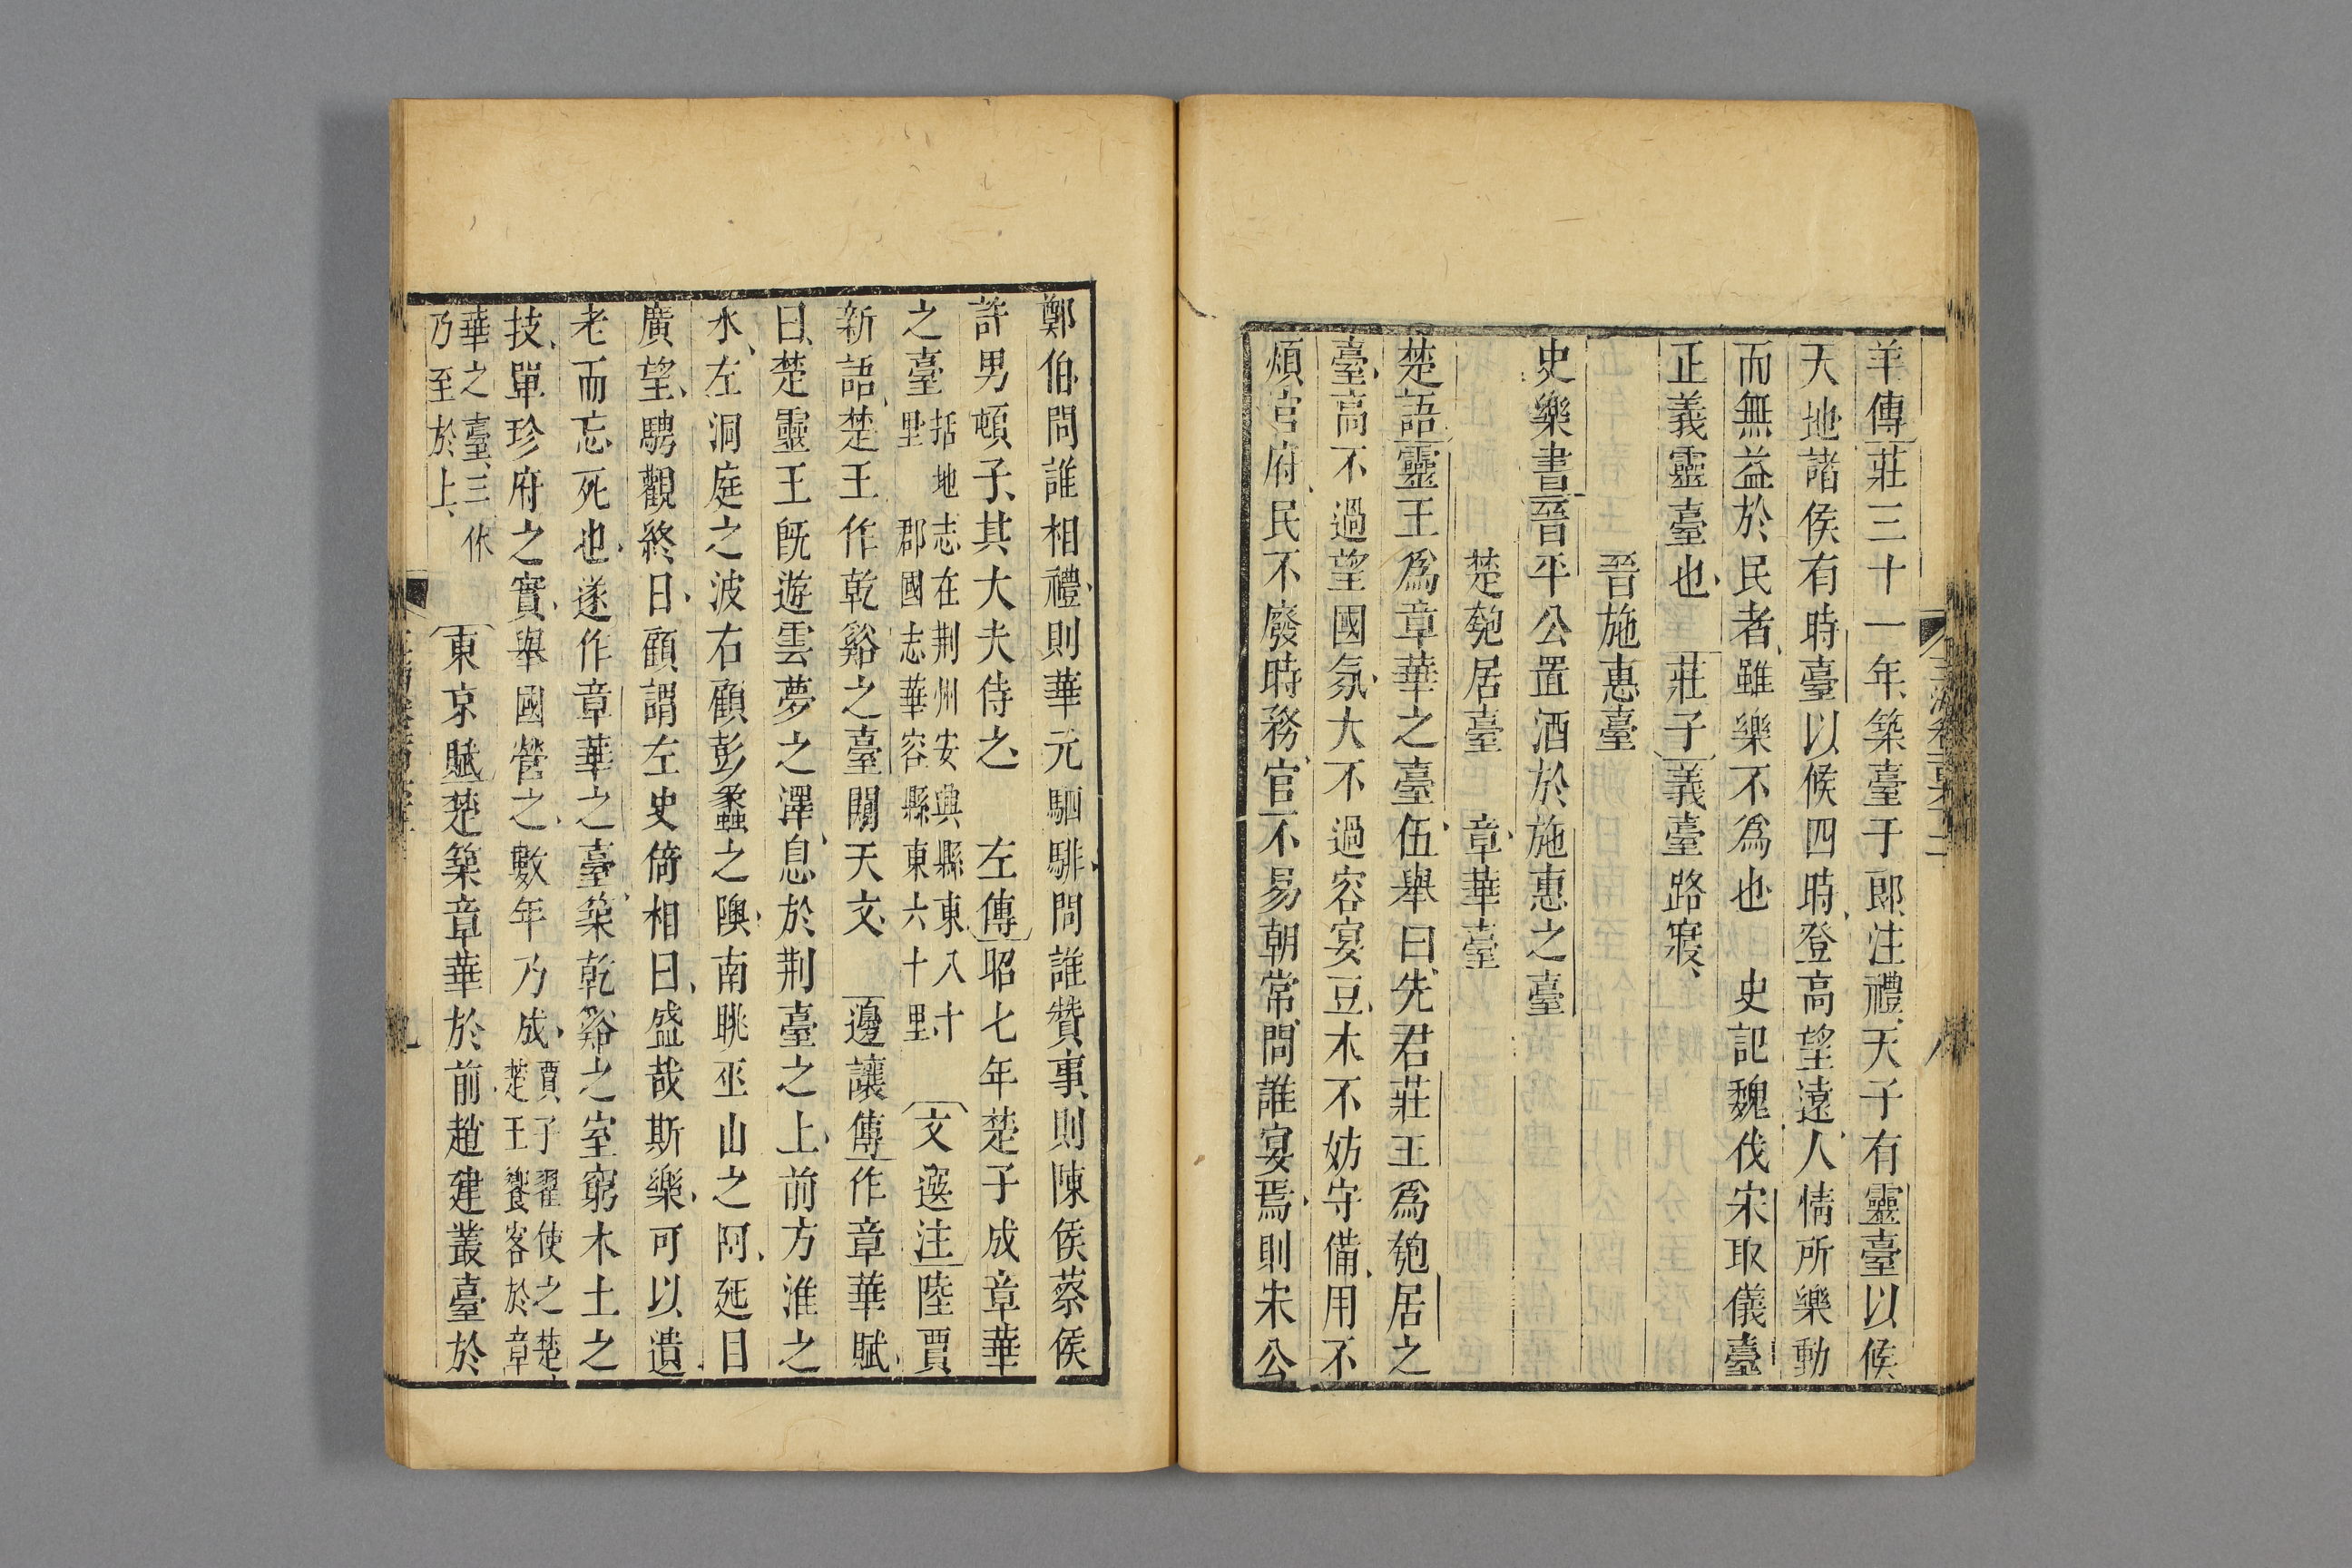 羊傳莊三十一年築臺于郎注禮天子有靈臺以候
天地諸侯有時臺以候四時登高望遠人情所樂動
而無益於民者雖樂不爲也 史記魏伐宋取儀臺
正義靈臺也 莊子義臺路寢
晉施惠臺
史樂書晉平公置酒於施惠之臺
楚匏居臺 章華臺
楚語靈王爲章華之臺伍舉曰先君莊王爲匏居之
臺高不過望國氛大不過容宴豆木不妨守備用不
煩官府民不廢時務官不易朝常問誰宴焉則宋公
鄭伯問誰相禮則華元駟騑問誰贊事則陳侯蔡侯
許男頓子其大夫侍之 左傳昭七年楚子成章華
之臺括地志在荆州安興縣東八十里郡國志華容縣東六十里 文選注陸賈
新語楚王作乾谿之臺闚天文 邊讓傳作章華賦
曰楚靈王旣遊雲夢之澤息於荆臺之上前方淮之
水左洞庭之波右顧彭蠡之隩南眺巫山之阿延目
廣望騁觀終日顧謂左史倚相曰盛哉斯樂可以遺
老而忘死也遂作章華之臺築乾谿之室窮木土之
技單珍府之實舉國營之數年乃成賈子翟使之楚楚王饗客於章
華之臺三休乃至於上 東京賦楚築章華於前趙建叢臺於